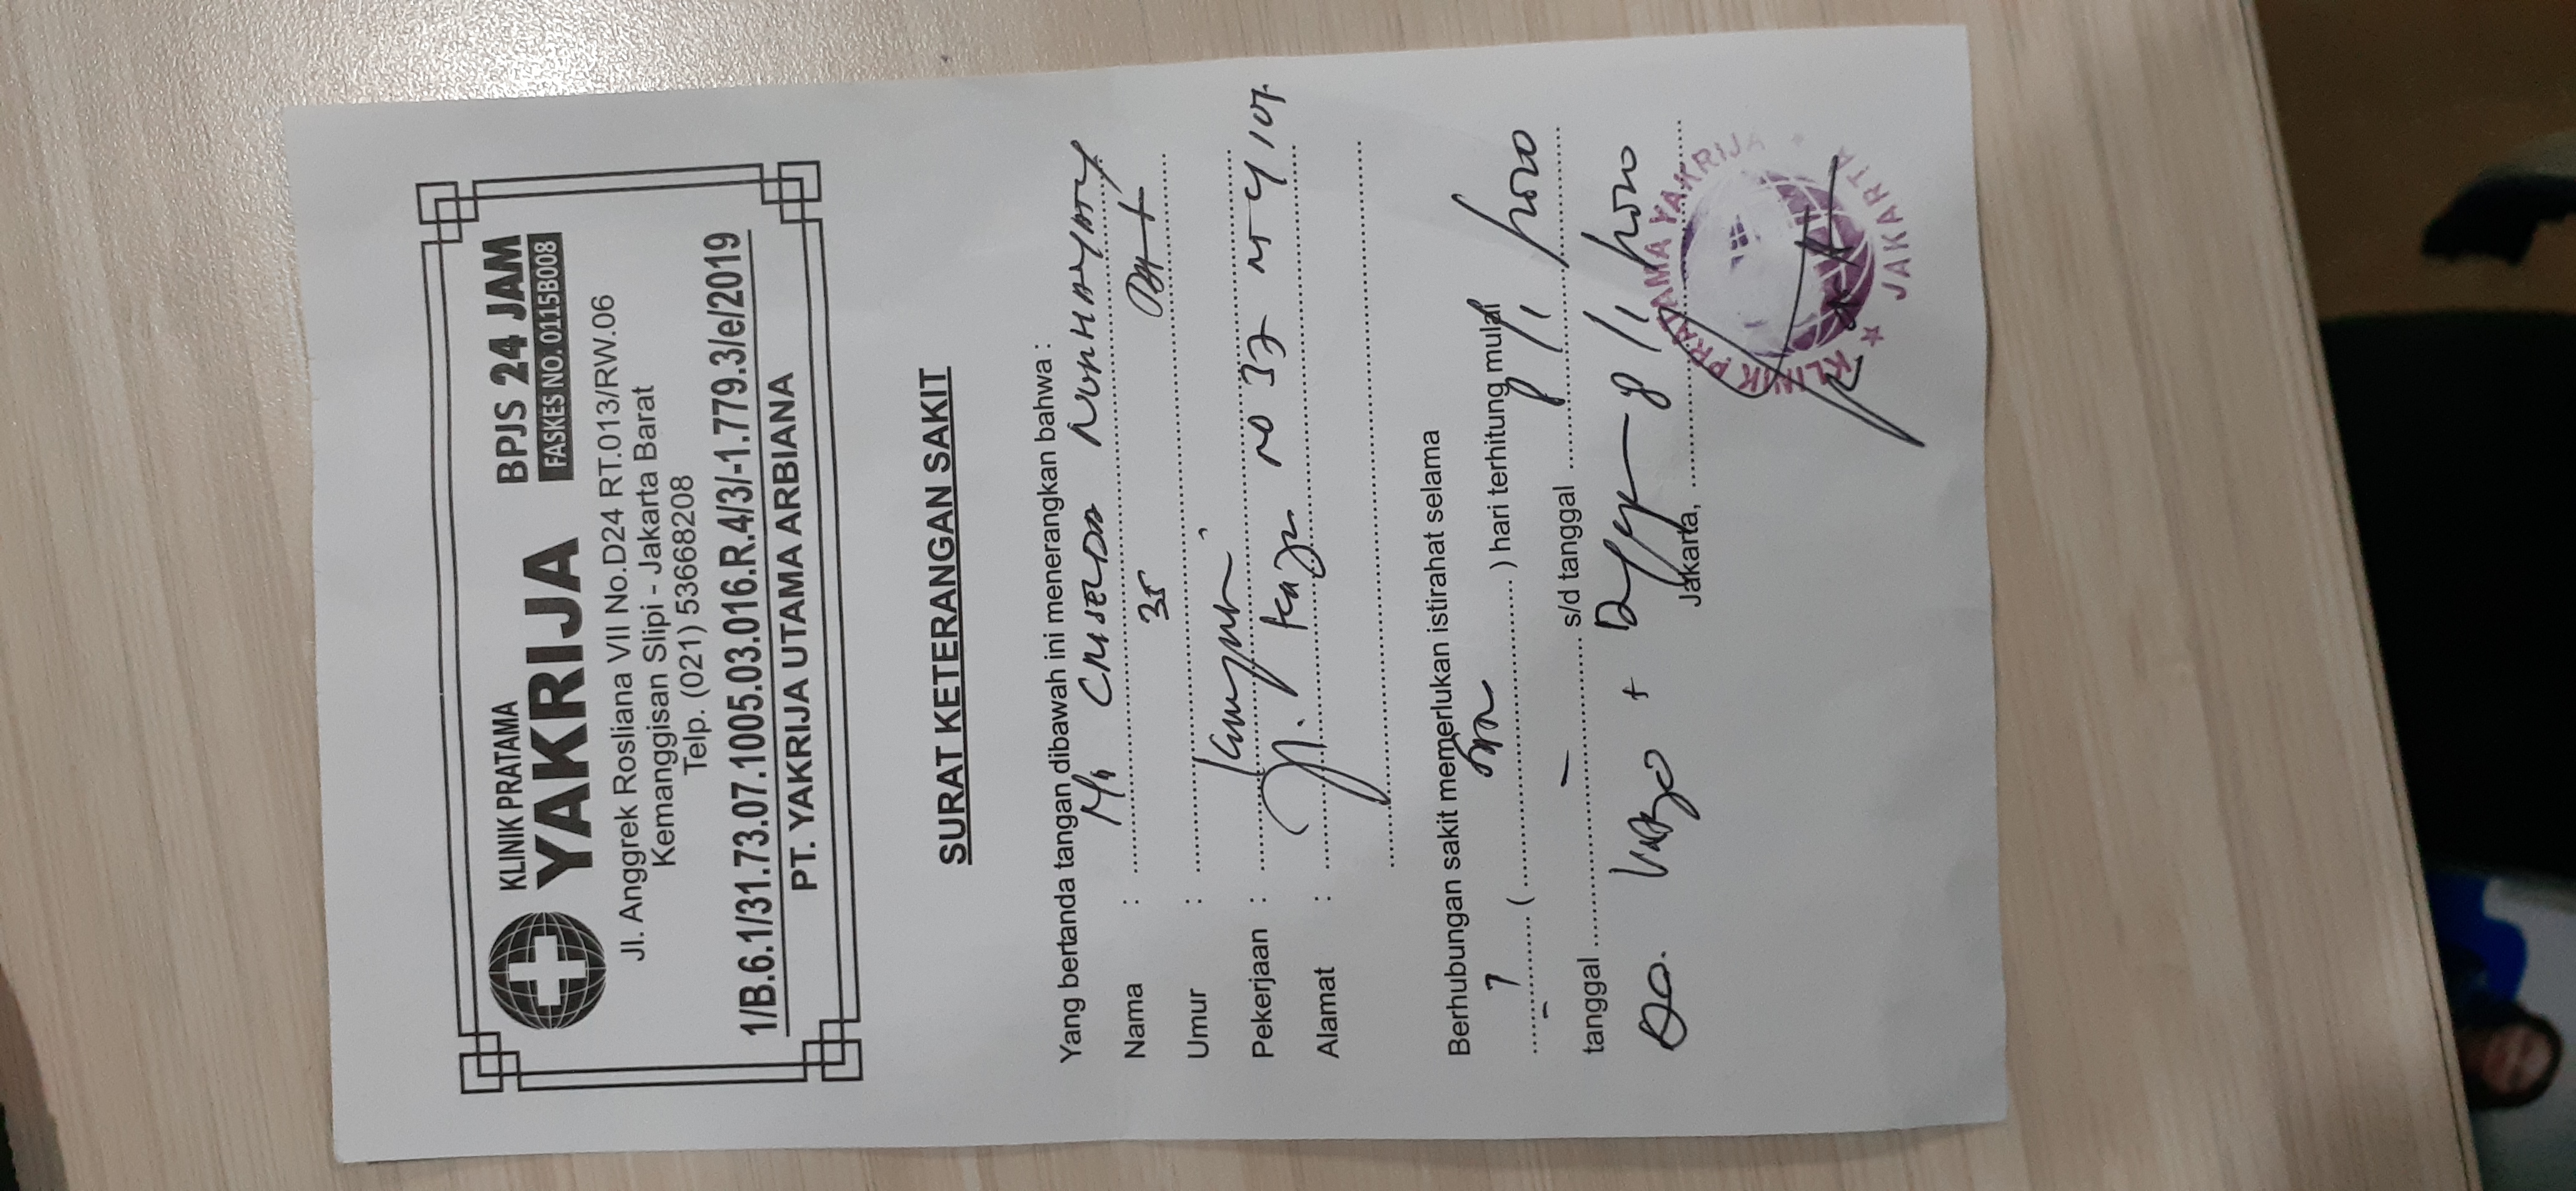 KLINIK PRATAMA
YAKRIJA
BPJS 24 JAM
FASKES NO. 0115B008
Jl. Anggrek Rosliana VII No.D24 RT.013/RW.06
Kemanggisan Slipi - Jakarta Barat
Telp. (021) 53668208
1/B.6.1/31.73.07.1005.03.016.R.4/3/-1.779.3/e/2019
PT. YAKRIJA UTAMA ARBIANA
SURAT KETERANGAN SAKIT
Yang bertanda tangan dibawah ini menerangkan bahwa :
Nama : NURHAYATY
Umur : 35
Pekerjaan :
Alamat : Jl. NO 37
Berhubungan sakit memerlukan istirahat selama
( ) hari terhitung mulai
tanggal - s/d tanggal 8/1/2020
8/1/2020
Jakarta,
KLINIK PRATAMA YAKRIJA
JAKARTA